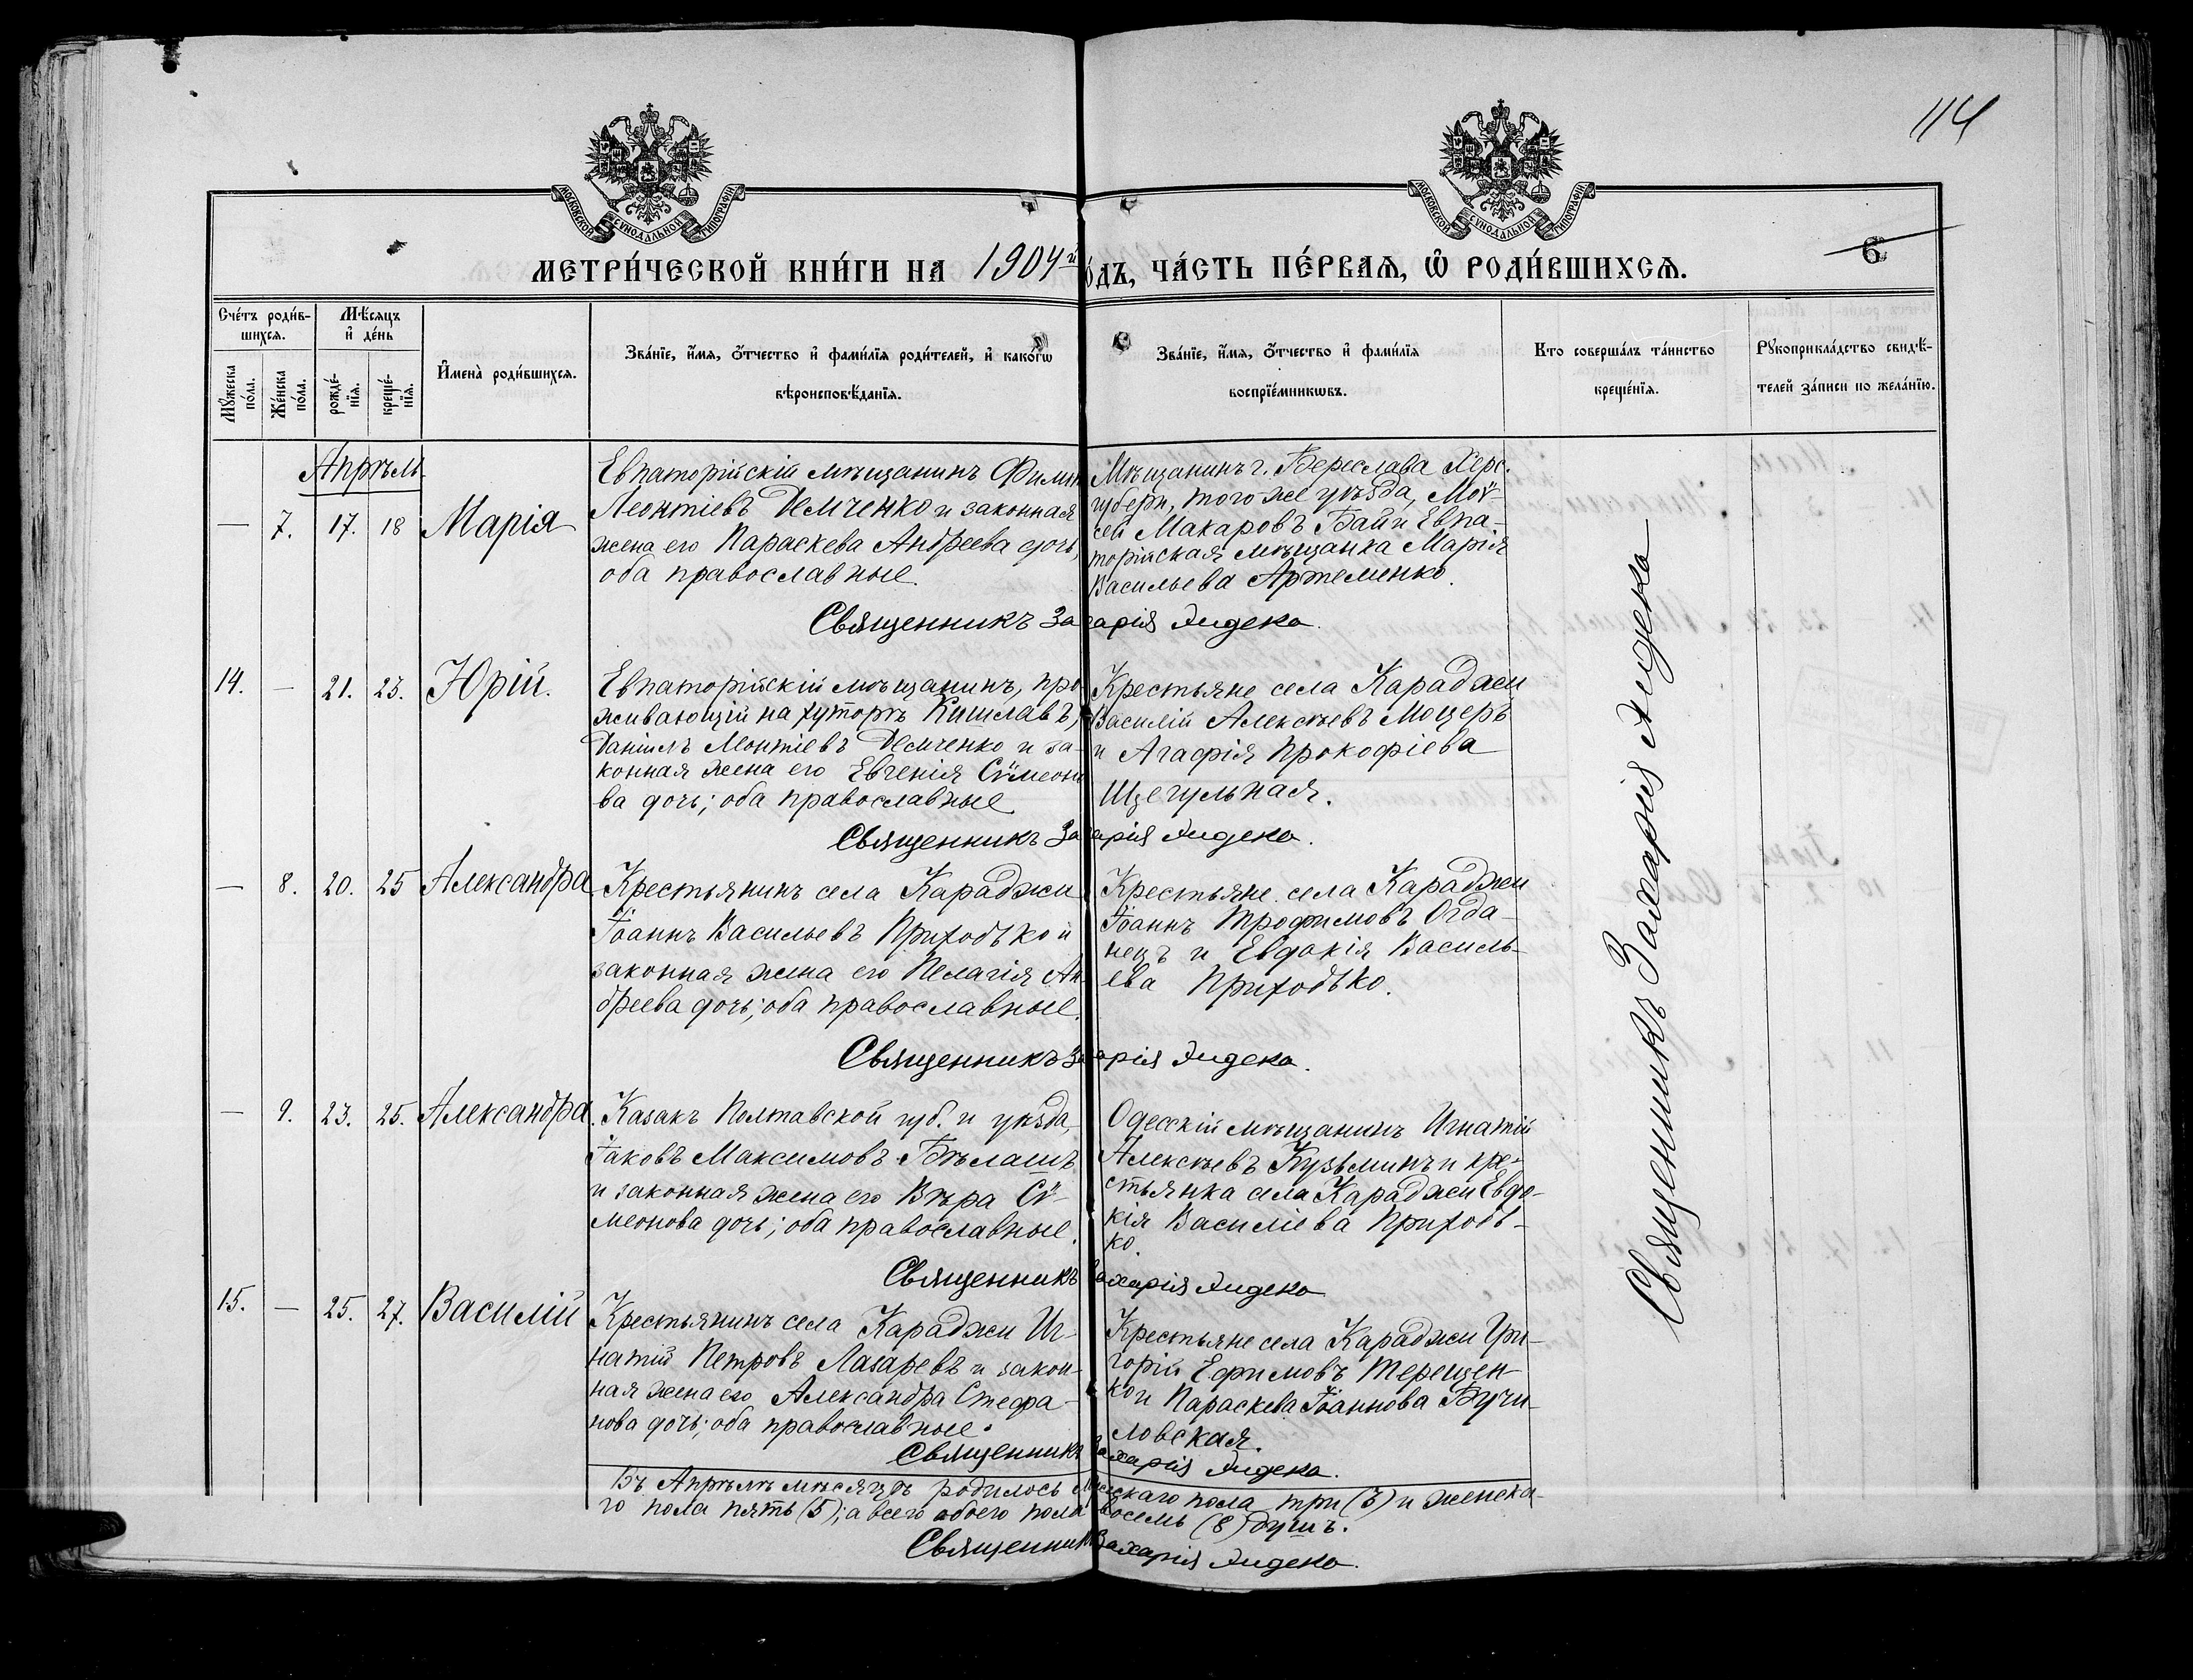 114
МОСКОВСКОЙ СУНОДАЛЬНОЙ ТИПОГРАФІИ
МОСКОВСКОЙ СУНОДАЛЬНОЙ ТИПОГРАФІИ
МЕТРИ́ЧЕСКОЙ КНИ́ГИ НА 1904й
о́дъ, ЧА́СТЬ ПЕ́РВАѦ, Ѽ РОДИ́ВШИХСѦ.
6
Сче́тъ роди́в-
шихсѧ.
Мѣ́сѧцъ
и҆ де́нь
Мꙋ́жеска
по́ла.
Же́нска
по́ла.
рожде́-
нїѧ.
креще́-
нїѧ.
И҆мена̀ роди́вшихсѧ.
Зва́нїе, и҆́мѧ, ѻ҆́тчество и҆ фами́лїѧ роди́телей, и҆ како́гѡ
вѣроисповѣ́данїѧ.
Зва́нїе, и҆́мѧ, ѻ҆́тчество и҆ фами́лїѧ
воспрїе́мникѡвъ.
Кто соверша́лъ та́инство
креще́нїѧ.
Рꙋкоприкла́дство свидѣ́-
телей за́писи по жела́нїю.
Апрѣль
— 7. 17. 18 Марія
Евпаторійскій мѣщанинъ
Леонтіевъ Демченко и законная
жена его Параскева Андреева дочь,
оба православные.
Мѣщанинъ г. Береслава Херс.
губерн, того же уѣзда, Моѵ-
сей Макаровъ Бай и Евпа-
торійская мѣщанка Марія
Васильева Артеменко.
Священникъ Захарія
14. — 21. 23. Юрій.
Евпаторійскій мѣщанинъ, про
живающій на хуторѣ Кишлавъ,
Даніилъ Леонтіевъ Демченко и за-
конная жена его Евгенія Сѵмеоно
ва дочь; оба православные
Крестьяне села Караджи
Василій Алексѣевъ Моцеръ
и Агафія Прокофіева
Щегульная.
Священникъ Захарія
— 8. 20. 25 Александра
Крестьянинъ села Караджи
Іоаннъ Васильевъ Приходько и
законная жена его Пелагія Ан-
дреева дочь; оба православные.
Крестьяне села Караджи
Іоаннъ Трофимовъ Огда-
нецъ и Евдокія Василь-
ева Приходько.
Священникъ Захарія
— 9. 23. 25. Александра.
Казакъ Полтавской губ. и уѣзда,
Іаковъ Максимовъ Бѣлашъ
и законная жена его Вѣра Сѵ-
меонова дочь; оба православные.
Одесскій мѣщанинъ Игнатій
Алексѣевъ Кузьминъ и кре-
стьянка села Караджи Евдо-
кія Василіева Приходь-
ко.
Священникъ Захарія
15. — 25. 27. Василій
Крестьянинъ села Караджи Иг-
натій Петровъ Лазаревъ и закон-
ная жена его Александра Стефа-
нова дочь; оба православные.
Крестьяне села Караджи Гри-
горій Ефимовъ Терещен-
ко и Параскева Іоаннова Бучи-
ловская.
Священникъ Захарія
Въ Апрѣлѣ мѣсяцѣ родилось мужскаго пола три (3) и женска-
го пола пять (5); а всего обоего пола восемь (8) душъ.
Священникъ Захарія
Священникъ Захарія